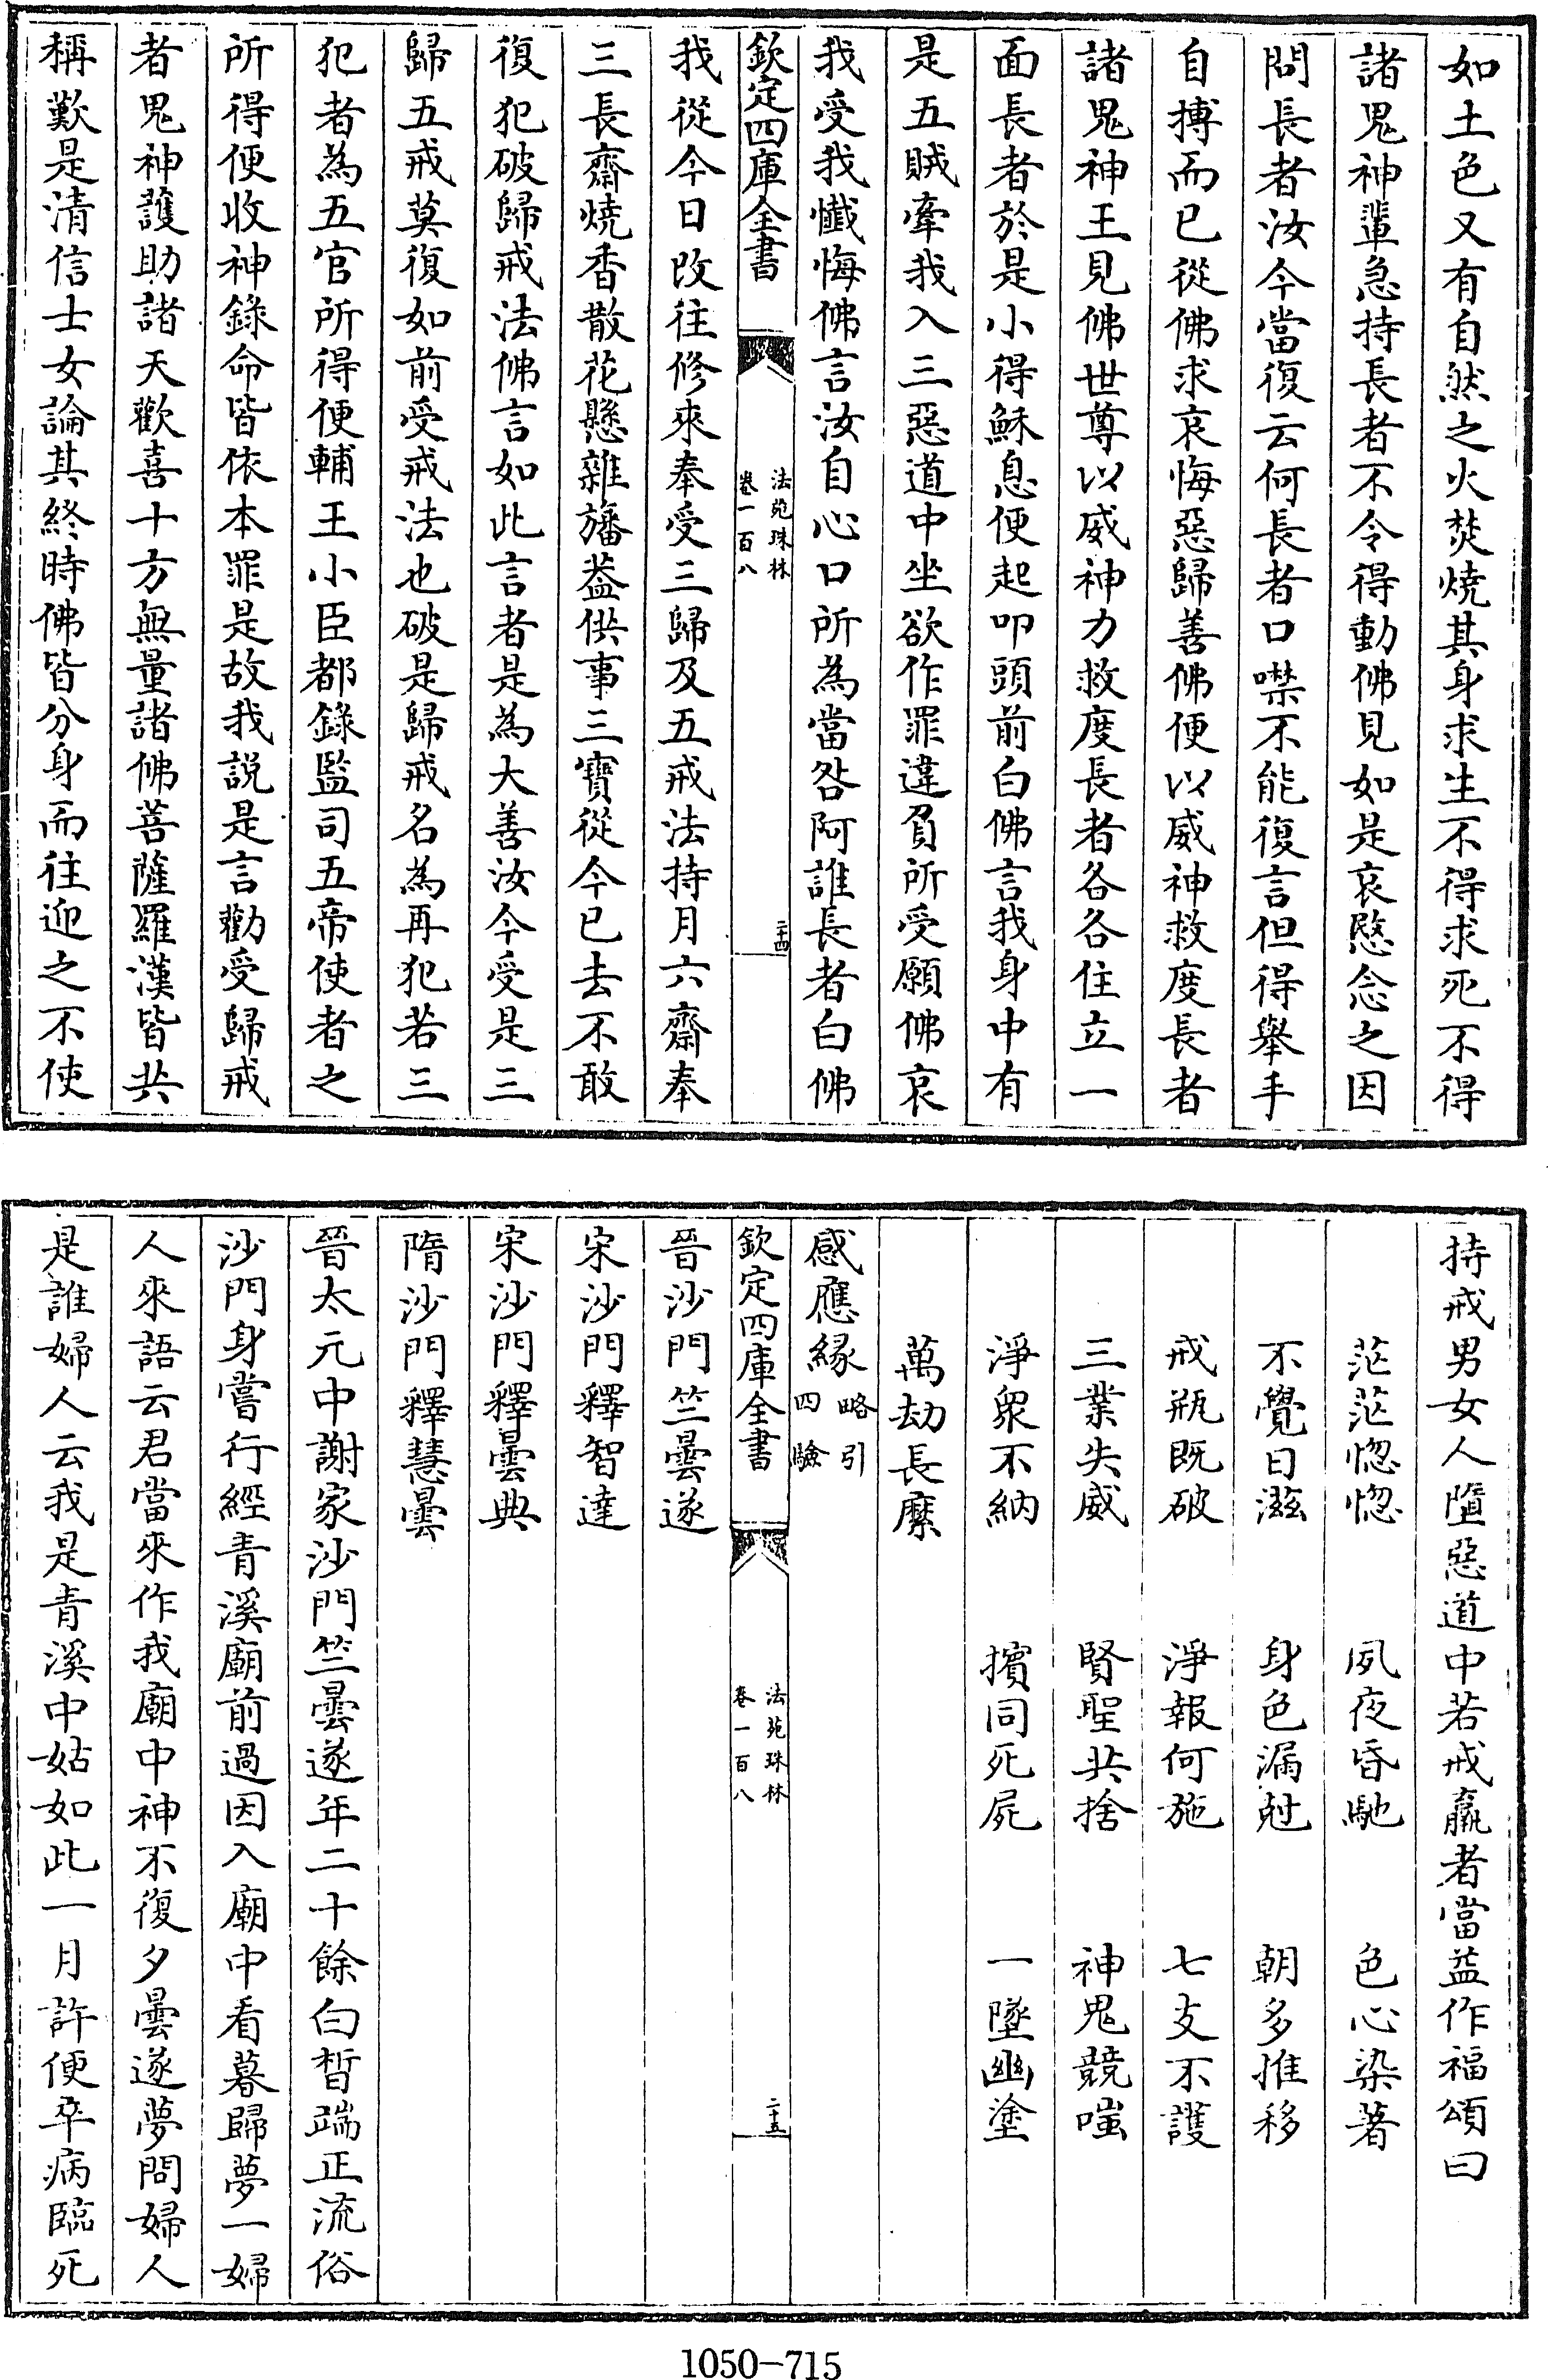 如土色又有自然之火焚燒其身求生不得求死不得
諸鬼神輩急持長者不令得動佛見如是哀愍念之因
問長者汝今當復云何長者口噤不能復言但得舉手
自搏而已從佛求哀悔惡歸善佛便以威神救度長者
諸鬼神王見佛世尊以威神力救度長者各各住立一
面長者於是小得穌息便起叩頭前白佛言我身中有
是五賊牽我入三惡道中坐欲作罪違負所受願佛哀
我受我懺悔佛言汝自心口所為當咎阿誰長者白佛
欽定四庫全書
法苑珠林
卷一百八
二十四
我從今日改往修來奉受三歸及五戒法持月六齋奉
三長齋燒香散花懸雜旛葢供事三寶從今已去不敢
復犯破歸戒法佛言如此言者是為大善汝今受是三
歸五戒莫復如前受戒法也破是歸戒名為再犯若三
犯者為五官所得便輔王小臣都錄監司五帝使者之
所得便收神錄命皆依本罪是故我説是言勸受歸戒
者鬼神護助諸天歡喜十方無量諸佛菩薩羅漢皆共
稱歎是清信士女論其終時佛皆分身而往迎之不使
持戒男女人墮惡道中若戒羸者當益作福頌曰
茫茫惚惚 夙夜昏馳 色心染著
不覺日滋 身色漏尅 朝多推移
戒瓶既破 淨報何施 七支不護
三業失威 賢聖共捨 神鬼競嗤
淨衆不納 擯同死屍 一墜幽塗
萬劫長縻
感應緣 略引四驗
欽定四庫全書
法苑珠林
卷一百八
二十五
晉沙門竺曇遂
宋沙門釋智達
宋沙門釋曇典
隋沙門釋慧曇
晉太元中謝家沙門竺曇遂年二十餘白晳端正流俗
沙門身嘗行經青溪廟前過因入廟中看暮歸夢一婦
人來語云君當來作我廟中神不復夕曇遂夢問婦人
是誰婦人云我是青溪中姑如此一月許便卒病臨死
1050-715